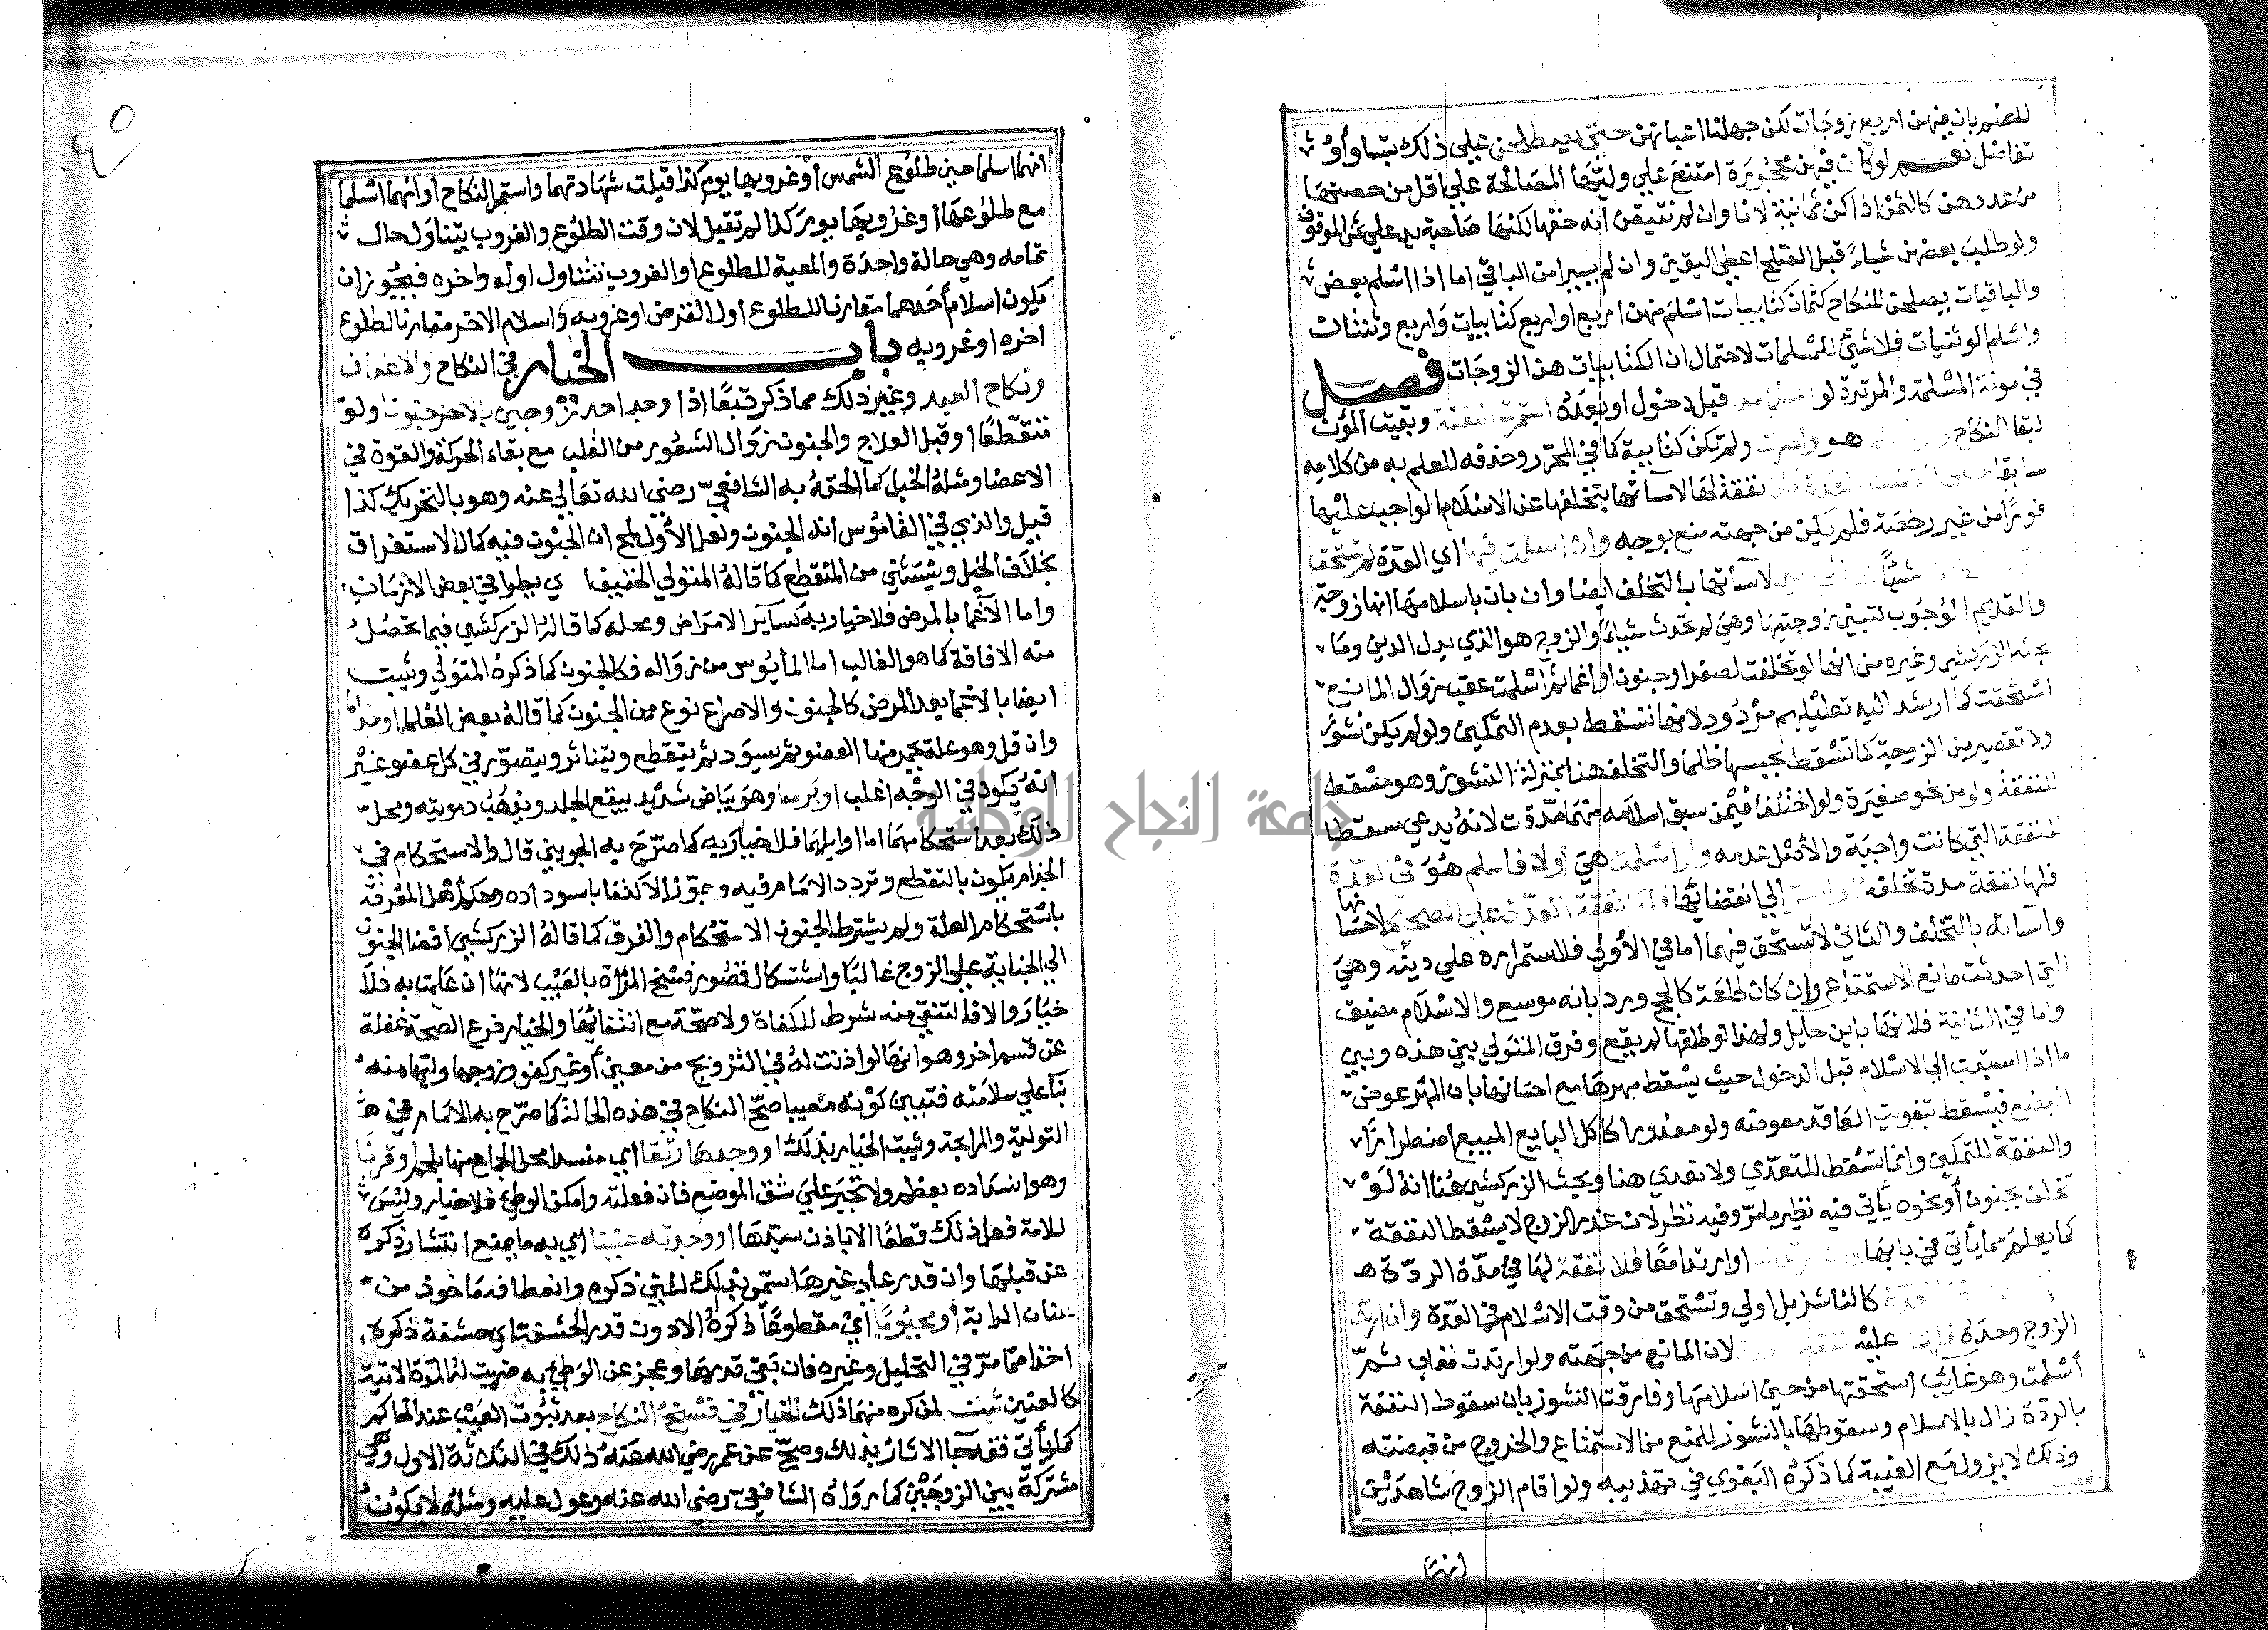 للعلم بان فيهن اربع زوجات لكن جهلنا اعيانهن حتى يصطلحن على ذلك بتساو أو
تفاضل نعم لو كان فيهن محجورة امتنع علي وليها المصالحة علي اقل من حصتها
من عددهن كالثمن اذا كن ثمانية لانا وان لم نتيقن أنه حقها لكنها صاحبة يد علي ثمن الموقوف
ولو طلب بعضهن شياء قبل الصلح اعطى اليقين وان لم يبرا من الباقي اما اذا اسلم بعض
والباقيات يصلحن للنكاح كثمان كتابيات اسلم منهن اربع او اربع كتابيات واربع وثنيات
واسلم الوثنيات فلا شئ للمسلمات لاحتمال ان الكتابيات هن الزوجات فصل
في مونة المسلمة والمرتدة لو قبل دخول او بعده استمرت النفقة وبقيت المؤن
لبقا النكاح هو واصرت ولم تكن كتابية كما في المحرر وحذفه للعلم به من كلامه
سابقا حتى انقضت العدة فلا نفقة لها لاسآتها بتخلفها عن الاسلام الواجب عليها
فورا من غير رخصة فلم يكن من جهته منع بوجه وان اسلمت فيها اي العدة لم تستحق
شيًا لاسآتها بالتخلف ايضا وان بان باسلامها انها زوجة
والقديم الوجوب لتبين زوجيتها وهي لم تحدث شياء والزوج هو الذي بدل الدين وما
بحثه الزركشي وغيره من انها لو تخلفت لصغر او جنون او اغماء ثم اسلمت عقب زوال المانع
استحقت كما ارشد اليه تعليلهم مردود لانها تسقط بعدم التمكين ولو لم يكن نشوز
ولا تقصير من الزوجة كما تسقط بحبسها ظلما والتخلف هنا بمنزلة النشوز وهو مسقط
للنفقة ولو من نحو صغيرة ولو اختلفا فيمن سبق اسلامه منهما صدقت لانه يدعي مسقطا
للنفقة التي كانت واجبة والأصل عدمه وان اسلمت هي أولا فاسلم هو في العدة
فلها نفقة مدة تخلفه الي انقضائها فلها نفقة العدة على الصحيح لاحسانها
واسائه بالتخلف والثاني لا تستحق فيهما اما في الأولي فلاستمراره علي دينه وهي
التي احدثت مانع الاستمتاع وان كان لطاعة كالحج ورد بانه موسع والاسلام مضيق
واما في الثانية فلانها باين حايل ولهذا لو طلقها لم يقع وفرق المتولي بين هذه وبين
ما اذا اسبقت الي الاسلام قبل الدخول حيث يسقط مهرها مع احسانها بان المهر عوض
البضع فيسقط بتفويت العاقد معوضه ولو معذورا كاكل البايع المبيع اضطرارا
والنفقة للتمكين وانما تسقط للتعدي ولا تعدي هنا وبحث الزركشي هنا انه لو
تخلف بجنون أو نحوه يأتي فيه نظير ما مر وفيه نظر لان عذر الزوج لا يسقط النفقة
كما يعلم مما يأتي في بابها او ارتدا معًا فلا نفقة لها في مدة الردة
كالناشز بل اولي وتستحق من وقت الاسلام في العدة وان ارتد
الزوج وحده فلها عليه نفقة لان المانع من جهته ولو ارتدت فغاب ثم
أسلمت وهو غائب استحقتها من حين اسلامها وفارقت النشوز بان سقوط النفقة
بالردة زال بالاسلام وسقوطها بالنشوز للمنع من الاستمتاع والخروج من قبضته
وذلك لا يزول مع الغيبة كما ذكره البغوي في تهذيبه ولو اقام الزوج شاهدين
انهما
انهما اسلما حين طلوع الشمس أو غروبها يوم كذا قبلت شهادتهما واستمر النكاح أو انهما اسلما
مع طلوعها او غروبها يوم كذا لم تقبل لان وقت الطلوع والغروب يتناول حال
تمامه وهي حالة واحدة والمعية للطلوع او الغروب تتناول اوله واخره فيجوز ان
يكون اسلام أحدهما مقارنا للطلوع أول القرص او غروبه واسلام الاخر مقارنا لطلوع
اخره او غروبه باب الخيار في النكاح والاعفاف
ونكاح العبد وغير ذلك مما ذكر تبعًا اذا وجد احد الزوجين بالاخر جنونا ولو
متقطعًا او قبل العلاج والجنون زوال الشعور من القلب مع بقاء الحركة والقوة في
الاعضا ومثله الخبل كما الحقه به الشافعي رضي الله تعالي عنه وهو بالتحريك كذا
قيل والذي في القاموس انه الجنون ولعل الأول لمح ان الجنون فيه كمال الاستغراق
بخلاف الخبل ويستثني من المتقطع كما قاله المتولي الخفيف اي يطرا في بعض الازمان
واما الاغما بالمرض فلا خيار به كسآير الامراض ومحله كما قاله الزركشي فيما تحصل
منه الافاقة كما هو الغالب اما المأيوس من زواله فكالجنون كما ذكره المتولي ويثبت
ايضا بالاغما بعد المرض كالجنون والاصراع نوع من الجنون كما قاله بعض العلما او جذاما
وان قل وهو علة يحمر منها العضو ثم يسود ثم يتقطع ويتناثر ويتصور في كل عضو غير
انه يكون في الوجه اغلب او برصا وهو بياض شديد يبقع الجلد ويذهب دمويته ومحل
ذلك بعد استحكامهما اما اوايلهما فلا خيار به كما صرح به الجويني قال والاستحكام في
الجذام يكون بالتقطع وتردد الامام فيه وجوز الاكتفا باسوداده وحكم أهل المعرفة
باستحكام العلة ولم يشترط الجنون الاستحكام والفرق كما قاله الزركشي افضا الجنون
الي الجناية علي الزوج غالبا واستشكال قصور فسخ المرأة بالعيب لانها ان علمت به فلا
خيار والا فالتنقي منه شرط للكفاة ولا صحة مع انتفائها والخيار فرع الصحة غفلة
عن قسم اخر وهو انها لو اذنت له في التزويج من معين أو غير كفو وزوجها وليها منه
بنآ علي سلامته فتبين كونه معيبا صح النكاح في هذه الحالة كما صرح به الامام في
التولية والمرابحة ويثبت الخيار بذلك او وجدها رتقا أي منسدا محل الجماع منها بلحم او قرنا
وهو انسداده بعظم ولا تجبر علي شق الموضع فان فعلته وامكن الوطئ فلا خيار وليس
للامة فعل ذلك قطعًا الا باذن سيدها او وجدته عنينا اي به ما يمنع انتشار ذكره
عن قبلها وان قدر علي غيرها سمي بذلك للين ذكره وانعطافه مأخوذ من
عنان الدابة أو مجبوبًا أيْ مقطوعًا ذكره الا دون قدر الحشفة اي حشفة ذكره
اخذا مما مر في التحليل وغيره فان بقي قدرها وعجز عن الوطئ به ضربت له المدة الاتية
كالعنين ثبت لمن كره منهما ذلك الخيار في فسخ النكاح بعد ثبوت العيب عند الحاكم
كما يأتي فقد جآ الاثار بذلك وصح عن عمر رضي الله عنه ذلك في الثلاثة الاول وهي
مشتركة بين الزوجين كما رواه الشافعي رضي الله عنه وعول عليه ومثله لا يكون
جامعة النجاح الوطنية